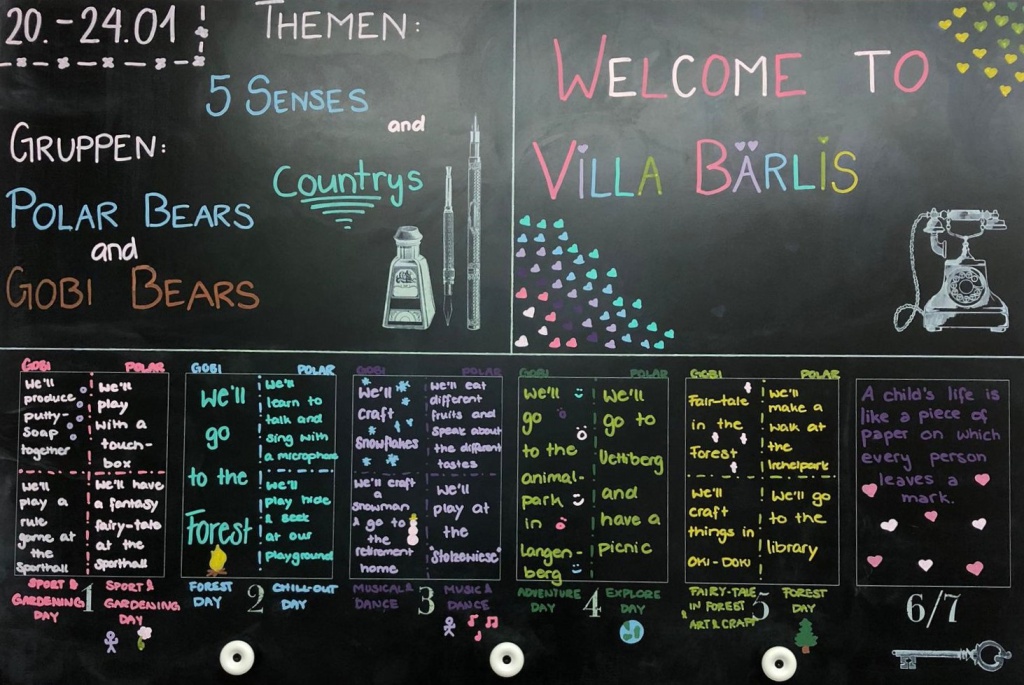 20.-24.01
THEMEN:
5 SENSES
and
COUNTRYS
GRUPPEN:
POLAR BEARS
and
GOBI BEARS
WELCOME TO
VILLA BÄRLIS
GOBI
we'll
produce
putty-
soap
together
we'll
play a
rule
game at
the
sporthall
SPORT &
GARDENING
DAY
1
POLAR
we'll
play
with a
touch-
box
we'll have
a fantasy
fairy-tale
at the
sporthall
SPORT &
GARDENING
DAY
GOBI
we'll
go
to the
Forest
FOREST
DAY
2
POLAR
we'll
learn to
talk and
sing with
a microphone
we'll
play hide
& seek
at our
playground
CHILL-OUT
DAY
GOBI
we'll
craft
snowflakes
we'll craft
a
snowman
& go to
the
retirement
home
MUSICAL &
DANCE
3
POLAR
we'll eat
different
fruits and
speak about
the different
tastes
we'll
play at
the
"Stolzewiese"
MUSIC &
DANCE
GOBI
we'll
go
to the
animal-
park
in
langen-
berg
ADVENTURE
DAY
4
POLAR
we'll
go to
Uetliberg
and
have a
picnic
EXPLORE
DAY
GOBI
Fair-tale
in the
Forest
we'll
craft
things in
OKI-DOKI
FAIRY-TALE
IN FOREST
ART & CRAFT
5
POLAR
we'll
make a
walk at
the
Irchelpark
we'll go
to the
library
FOREST
DAY
A child's life is
like a piece of
paper on which
every person
leaves a
mark.
6/7